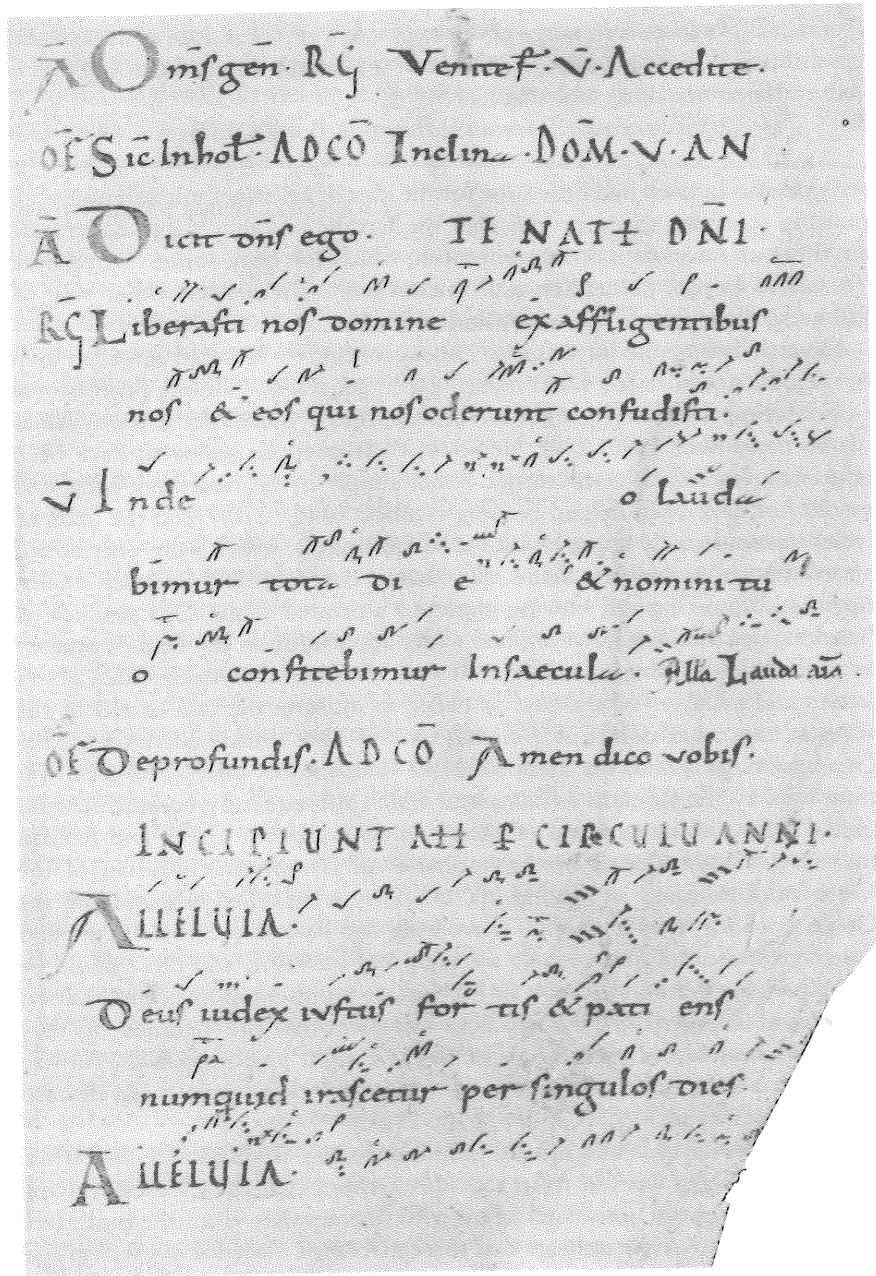 Ā Om̄s gen̄. RG Venite F̄. V̄. Accedite.
OF̄ Sic̄ In hoł. AD CŌ Inclina. DOM̄. V. AN
Ā Dicit dn̄s ego. TE NAT DN̄I.
RG Liberasti nos domine ex affligentibus
nos & eos qui nos oderunt confudisti.
V̄ Inde o lauda
bimur tota di e & nomini tu
o confitebimur In saecula. Alla Lauda aīa.
OF̄ De profundis. AD CŌ Amen dico vobis.
INCIPIUNT CIRCULU ANNI.
ALLELUIA.
Deus iudex iustus for tis & pati ens
numquid irascetur per singulos dies.
ALLELUIA.